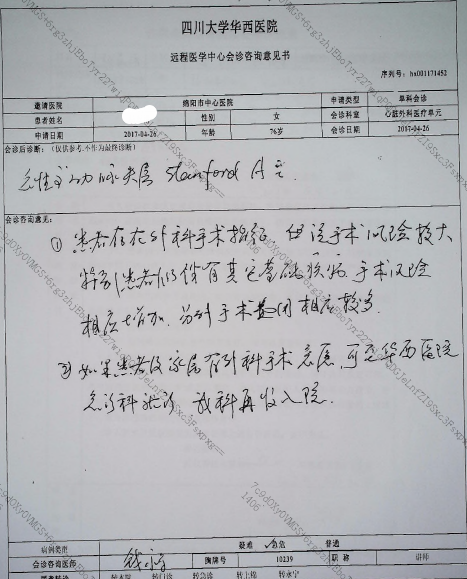 四川大学华西医院
远程医学中心会诊咨询意见书
序列号: hx001171452
邀请医院 绵阳市中心医院 申请类型 单科会诊
患者姓名 性别 女 会诊科室 心脏外科医疗单元
申请日期 2017-04-26 年龄 76岁 会诊日期 2017-04-26
会诊后诊断: (仅供参考,不作为最终诊断)
急性主动脉夹层 Stanford A型
会诊咨询意见:
① 患者存在外科手术指征 但该手术风险较大
特别患者 有其它基础疾病 手术风险
相应增加. 手术费用相应较多.
② 如果患者及家属有外科手术意愿, 可至华西医院
急诊科就诊 我科再收入院.
病例类型 疑难 ✓急危 普通
会诊咨询医师 胸牌号 10239 职称 讲师
转本院 转门诊 转急诊 转上锦 转永宁